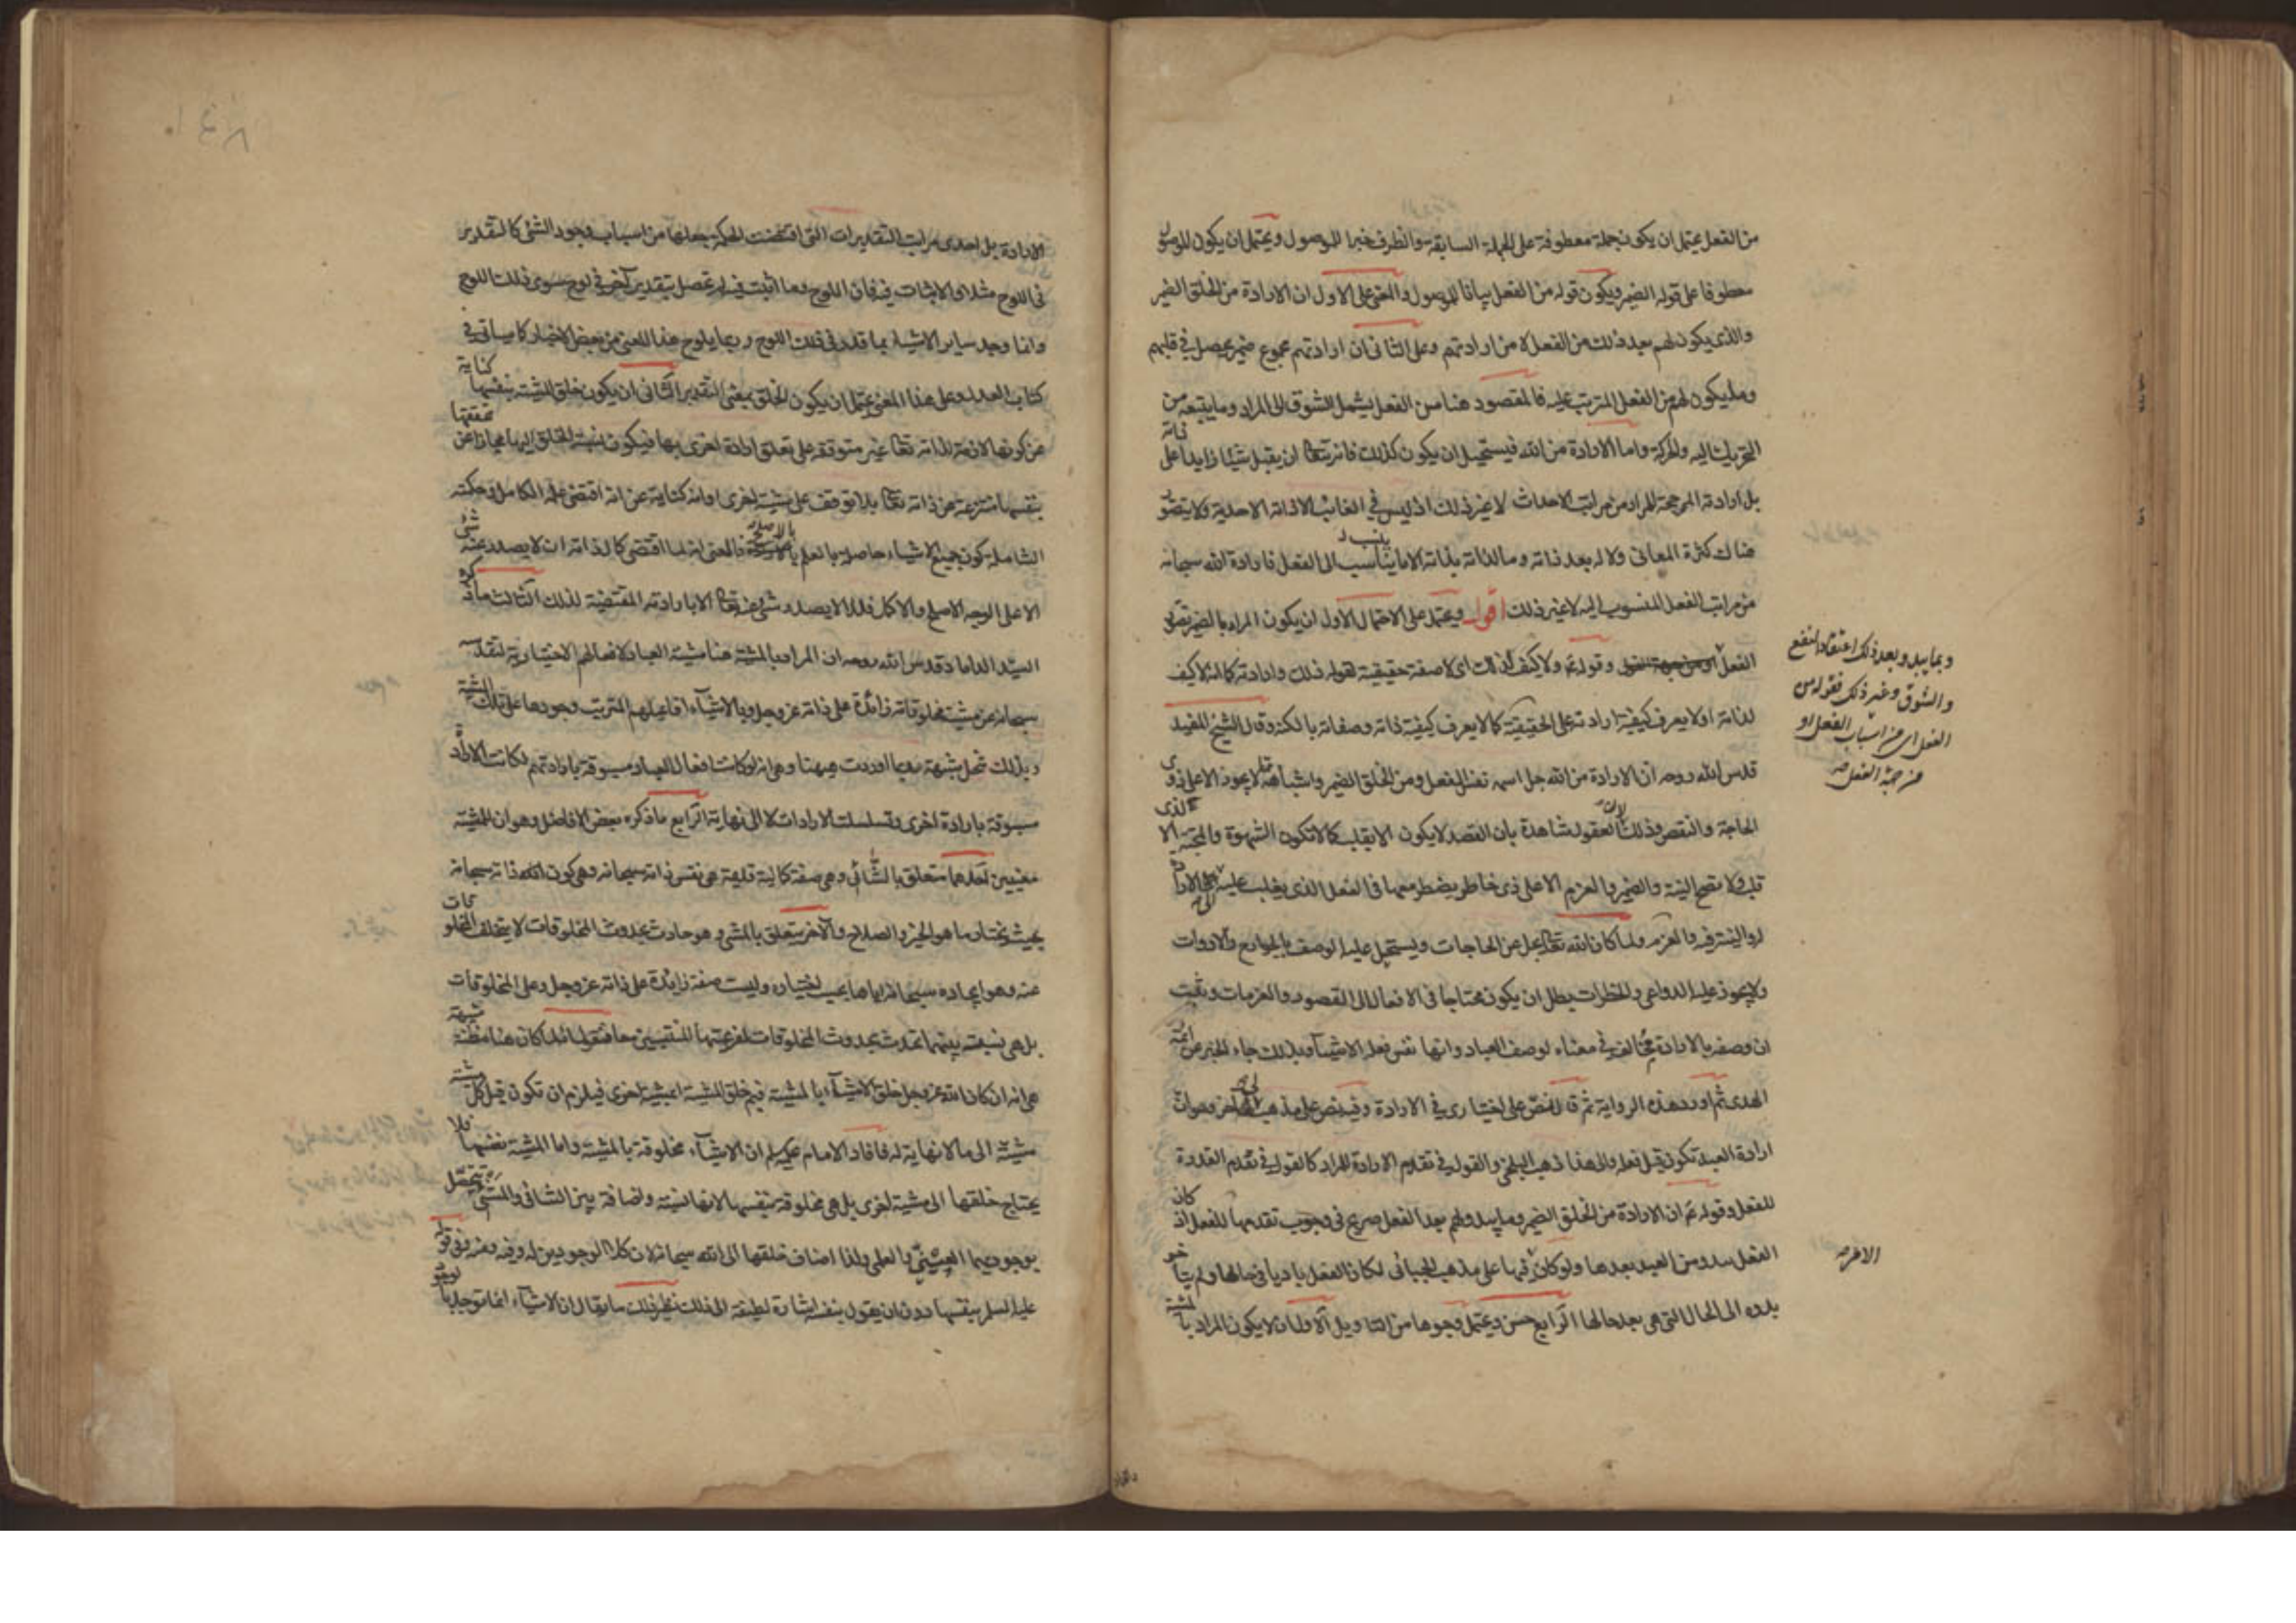 من الفعل يحتمل ان يكون جملة معطوفة على الجملة السابقة والظرف خبرا للموصول ويحتمل ان يكون الموصول
معطوفا على قوله الضمير ويكون قوله من الفعل بيانا للموصول والمعنى على الاول ان الارادة من الخلق الضمير
والذى يكون لهم بعد ذلك من الفعل لا من ارادتهم وعلى الثانى ان ارادتهم مجموع ضمير يحصل فى قلبهم
وما يكون لهم من الفعل المترتب عليه فالمقصود هنا من الفعل يشمل الشوق الى المراد وما يتبعه من
التحريك اليه والحركة واما الارادة من الله فيستحيل ان يكون كذلك فانه يتعالى ان يقبل شيئا زايدا على ذاته
بل ارادته المرجحة للمراد من مراتب الاحداث لا غير ذلك اذ ليس فى الغائب الا ذاته الاحدية ولا يتصور
هناك كثرة المعانى ولا له بعد ذاته وما لذاته بذاته الا ما ينسب الى الفعل فارادة الله سبحانه
من مراتب الفعل المنسوب اليه لا غير ذلك اقول ويحتمل على الاحتمال الاول ان يكون المراد بالضمير تصور
الفعل وقوله ع ولا كيف لذلك اى لا صفة حقيقية لقوله ذلك وارادته كما انه لا كيف
لذاته او لا يعرف كيفية ارادته على الحقيقة كما لا يعرف كيفية ذاته وصفاته بالكنه وقال الشيخ المفيد
قدس الله روحه ان الارادة من الله جل اسمه نفس الفعل ومن الخلق الضمير واشباهه مما لا يجوز الا على ذوى
الحاجة والنقص وذلك لان العقول شاهدة بان القصد لا يكون الا بقلب كما لا تكون الشهوة والمحبة الا لذى
قلب ولا تصح النية والضمير والعزم الا على ذى خاطر يضطر معها فى الفعل الذى يغلب عليه الى الارادة
له والنية فيه والعزم ولما كان الله تعالى يجل عن الحاجات ويستحيل عليه الوصف بالجوارح والادوات
ولا يجوز عليه الدواعى والخطرات بطل ان يكون محتاجا فى الافعال الى القصود والعزمات وثبت
ان وصفه بالارادة مخالف فى معناه لوصف العباد وانها نفس فعله الاشياء وبذلك جاء الخبر عن ائمة
الهدى ثم اورد هذه الرواية ثم قال نص على اختيارى فى الارادة وفيه نص على مذهب لى اخر وهو ان
ارادة العبد تكون قبل فعله والى هذا ذهب البلخى والقول فى تقدم الارادة للمراد كالقول فى تقدم القدرة
للفعل وقوله ع ان الارادة من الخلق الضمير وما يبدو لهم بعد الفعل صريح فى وجوب تقدمها للفعل اذ كان
الفعل يبدو من العبد بعدها ولو كان الامر فيها على مذهب الجبائى لكان الفعل باديا فى حالها ولم يتاخر
بدوه الى الحال التى هى بعد حالها الرابع حسن ويحتمل وجوها من التاويل الاول ان لا يكون المراد بالمشية
وبما يبدو بعد ذلك اعتقاد النفع
والشوق وغير ذلك فقوله من
الفعل اى من اسباب الفعل او
من جهة الفعل صح
الامر صح
الارادة بل احدى مراتب التقديرات التى اقتضت الحكمة جعلها من اسباب وجود الشئ كالتقدير
فى اللوح مثلا والاثبات فيه فان اللوح وما اثبت فيه لم تحصل بتقدير آخر فى لوح سوى ذلك اللوح
وانما وجد سائر الاشياء بما قدر فى ذلك اللوح وربما يلوح هذا المعنى من بعض الاخبار كما سياتى فى
كتاب العدل وعلى هذا المعنى يحتمل ان يكون الخلق بمعنى التقدير الثانى ان يكون خلق المشية بنفسها كناية
عن كونها لازمة لذاته تعالى غير متوقفة على تعلق ارادة اخرى بها فيكون نسبة الخلق اليها مجازا عن تحققها
بنفسها منتزعة عن ذاته تعالى بلا توقف على مشية اخرى او انه كناية عن انه اقتضى علمه الكامل وحكمته
الشاملة كون جميع الاشياء حاصلة بالعلم بالاصلح فالمعنى انه لما اقتضى كمال ذاته ان لا يصدر عنه شئ
الا على الوجه الاصلح والاكمل فلذا لا يصدر شئ عنه تعالى الا بارادته المقتضية لذلك الثالث ما ذكره
السيد الداماد قدس الله روحه ان المراد بالمشية هنا مشية العباد لافعالهم الاختيارية لتقدسه
سبحانه عن مشية مخلوقاته زائدة على ذاته عز وجل وبالاشياء افاعيلهم المترتب وجودها على تلك المشية
وبذلك تنحل شبهة ربما اوردت هيهنا وهى انه لو كانت افعال العباد مسبوقة بارادتهم لكانت الارادة
مسبوقة بارادة اخرى وتسلسلت الارادات لا الى نهاية الرابع ما ذكره بعض الافاضل وهو ان للمشية
معنيين احدهما متعلق بالشائى وهى صفة كمالية قديمة هى نفس ذاته سبحانه وهى كون ذاته سبحانه
بحيث يختار ما هو الخير والصلاح والآخر يتعلق بالمشئ وهو حادث بحدوث المخلوقات لا يتخلف المخلوقات
عنه وهو ايجاده سبحانه اياها بحسب اختياره وليست صفة زايدة على ذاته عز وجل وعلى المخلوقات
بل هى نسبة بينهما تحدث بحدوث المخلوقات لفرعيتها المنتسبين معا فنقول انه لما كان هنا مظنة شبهة
هى انه ان كان الله عز وجل خلق الاشياء بالمشية فبم خلق المشية ابمشية اخرى فيلزم ان تكون قبل كل مشية
مشية الى ما لا نهاية له فافاد الامام عليه السلم ان الاشياء مخلوقة بالمشية واما المشية نفسها فلا
يحتاج خلقها الى مشية اخرى بل هى مخلوقة بنفسها لانها نسبة واضافة بين الشائى والمشئ تتحصل
بوجوديهما العينى والعلمى ولذا اضاف خلقها الى الله سبحانه لان كلا الوجودين له وفيه ومنه وفى قوله
عليه السلم بنفسها دون ان يقول بنفسه اشارة لطيفة الى ذلك نظير ذلك ما يقال ان الاشياء انما توجد بالوجود